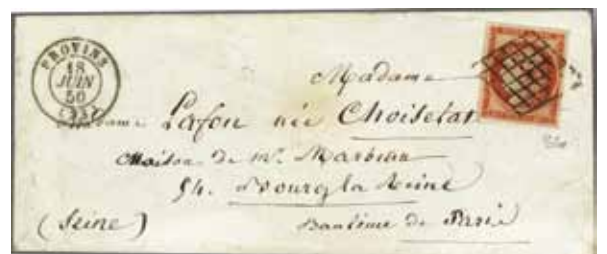 PROVINS
18
JUIN
50
Madame
Madame Lafon née Choiselat
Maison de Mr.
à Bourg la Reine
(Seine) Banlieue de Paris